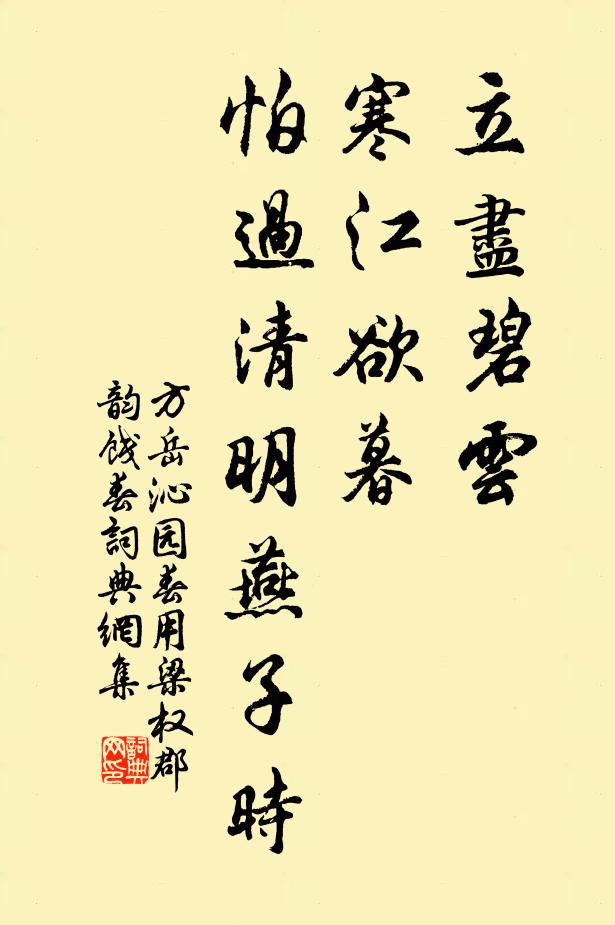 立盡碧雲
寒江欲暮
怕過清明燕子時
方岳沁园春用梁权郡
韵餞春詞典網集
詞典
网印